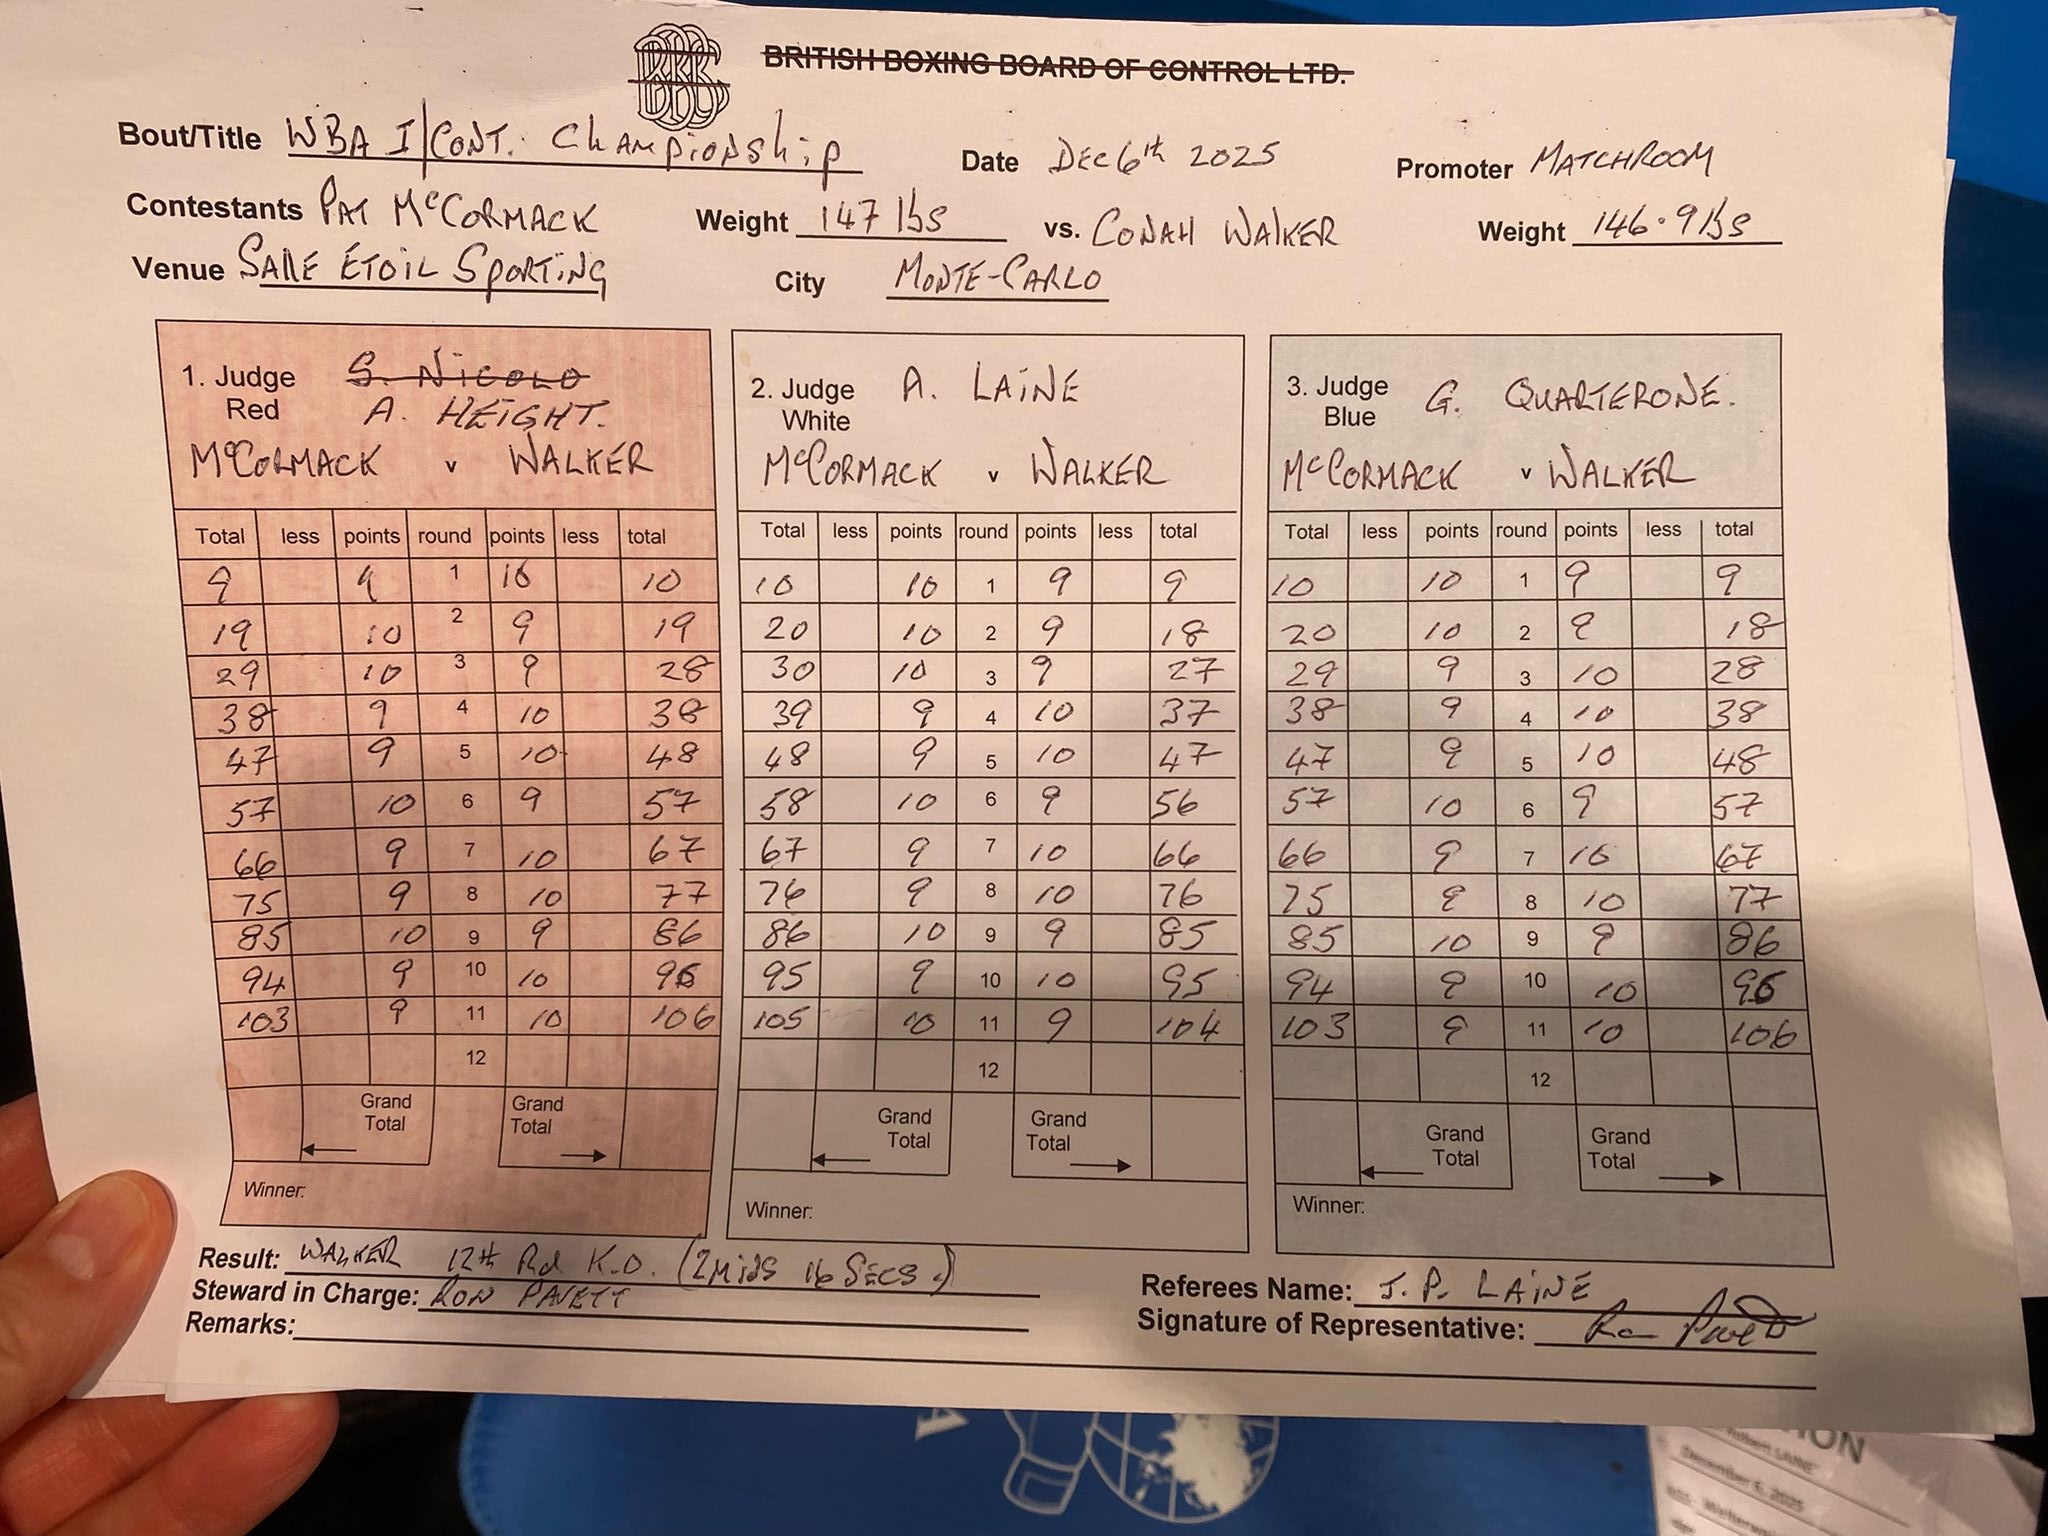 BRITISH BOXING BOARD OF CONTROL LTD.
Bout/Title WBA I/CONT. CHAMPIONSHIP Date DEC 6th 2025 Promoter MATCHROOM
Contestants PAT McCORMACK Weight 147 lbs vs. CONAH WALKER Weight 146.9 lbs
Venue SALLE ETOIL SPORTING City MONTE-CARLO
1. Judge Red S. NICOLO
A. HEIGHT.
McCORMACK v WALKER
Total less points round points less total
9 9 1 10 10
19 10 2 9 19
29 10 3 9 28
38 9 4 10 38
47 9 5 10 48
57 10 6 9 57
66 9 7 10 67
75 9 8 10 77
85 10 9 9 86
94 9 10 10 96
103 9 11 10 106
12
Grand Total Grand Total
Winner:
2. Judge White A. LAINE
McCORMACK v WALKER
Total less points round points less total
10 10 1 9 9
20 10 2 9 18
30 10 3 9 27
39 9 4 10 37
48 9 5 10 47
58 10 6 9 56
67 9 7 10 66
76 9 8 10 76
86 10 9 9 85
95 9 10 10 95
105 10 11 9 104
12
Grand Total Grand Total
Winner:
3. Judge Blue G. QUARTERONE.
McCORMACK v WALKER
Total less points round points less total
10 10 1 9 9
20 10 2 9 18
29 9 3 10 28
38 9 4 10 38
47 9 5 10 48
57 10 6 9 57
66 9 7 10 67
75 9 8 10 77
85 10 9 9 86
94 9 10 10 96
103 9 11 10 106
12
Grand Total Grand Total
Winner:
Result: WALKER 12th Rd K.O. (2 MINS 16 SECS.)
Steward in Charge: RON PAVETT
Remarks:
Referees Name: J. P. LAINE
Signature of Representative:
December 6, 2025